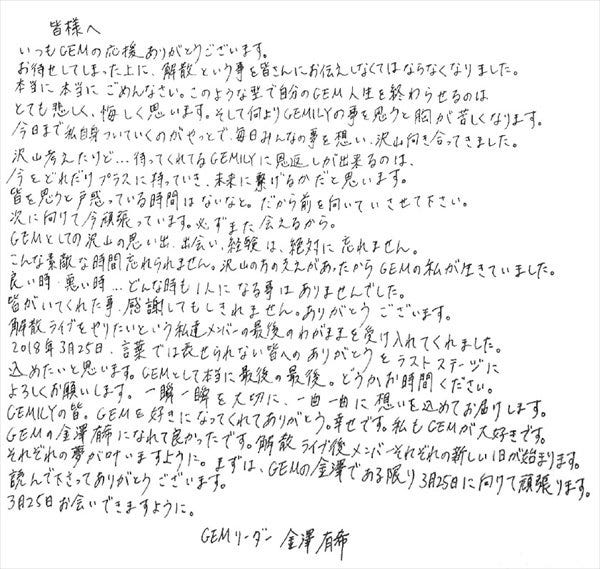 皆様へ
いつもGEMの応援ありがとうございます。
お待せしてしまった上に、解散という事を皆さんにお伝えしなくてはならなくなりました。
本当に本当にごめんなさい。このような型で自分のGEM人生を終わらせるのは
とても悲しく、悔しく思います。そして何よりGEMILYの事を思うと胸が苦しくなります。
今日まで私自身ついていくのがやっとで毎日みんなの事を想い、沢山向き合ってきました。
沢山考えたけど…待ってくれてるGEMILYに恩返しが出来るのは、
今をどれだけプラスに持っていき、未来に繋げるかだと思います。
皆を思うと戸惑っている時間はないなと。だから前を向いていさせて下さい。
次に向けて今頑張っています。必ずまた会えるから。
GEMとしての沢山の思い出、出会い、経験は、絶対に忘れません。
こんな素敵な時間忘れられません。沢山の方の支えがあったからGEMの私が生きていました。
良い時、悪い時…どんな時も1人になる事はありませんでした。
皆がいてくれた事、感謝してもしきれません。ありがとうございます。
解散ライブをやりたいという私達メンバーの最後のわがままを受け入れてくれました。
2018年3月25日、言葉では表せられない皆へのありがとうをラストステージに
込めたいと思います。GEMとして本当に最後の最後。どうかお時間ください。
よろしくお願いします。一瞬一瞬を大切に、一曲一曲に想いを込めてお届けします。
GEMILYの皆。GEMを好きになってくれてありがとう。幸せです。私もGEMが大好きです。
GEMの金澤有希になれて良かったです。解散ライブ後メンバーそれぞれの新しい1日が始まります。
それぞれの夢が叶いますように。まずは、GEMの金澤である限り3月25日に向けて頑張ります。
読んで下さってありがとうございます。
3月25日お会いできますように。
GEMリーダー 金澤有希